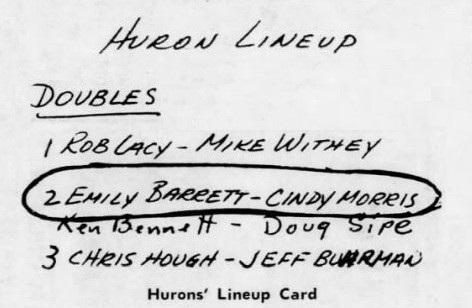 HURON LINEUP
DOUBLES
1 ROB LACY - MIKE WITHEY
2 EMILY BARRETT - CINDY MORRIS
Ken Bennett - Doug Sipe
3 CHRIS HOUGH - JEFF BUHRMAN
Hurons' Lineup Card